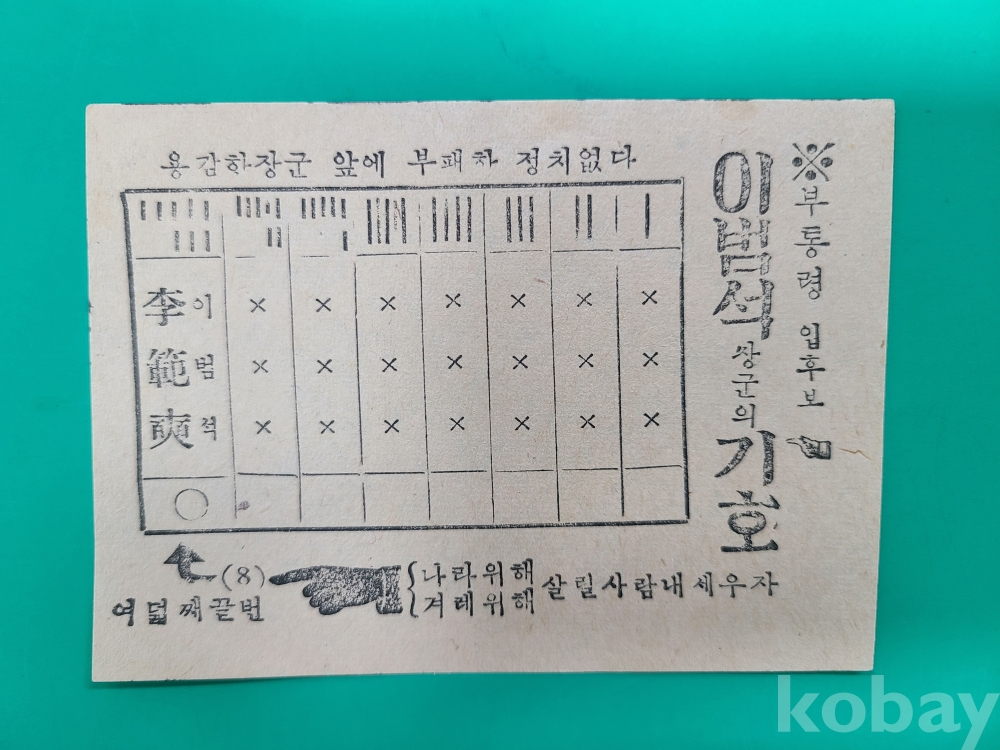 ※부통령 입후보
이범석 장군의 기호
용감한장군 앞에 부패한 정치없다
李 이 × × × × × × ×
範 범 × × × × × × ×
奭 석 × × × × × × ×
○
(8)
여덟째끝번
나라위해
겨레위해
살릴사람내세우자
kobay